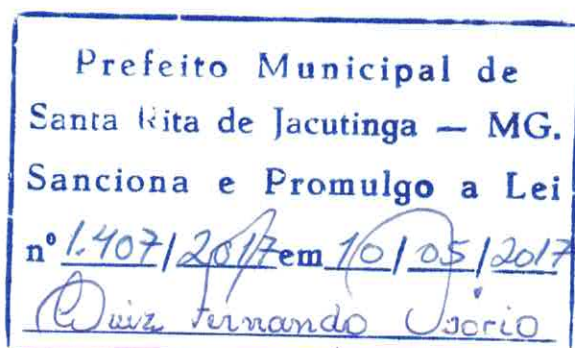 Prefeito Municipal de
Santa Rita de Jacutinga — MG.
Sanciona e Promulgo a Lei
nº 1.407/2017 em 10/05/2017
Luiz Fernando Osório